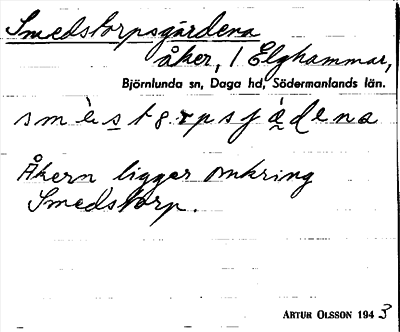 Smedstorpsgärdena
åker, 1. Elghammar,
Björnlunda sn, Daga hd, Södermanlands län.
Åkern ligger omkring
Smedstorp.
ARTUR OLSSON 1943